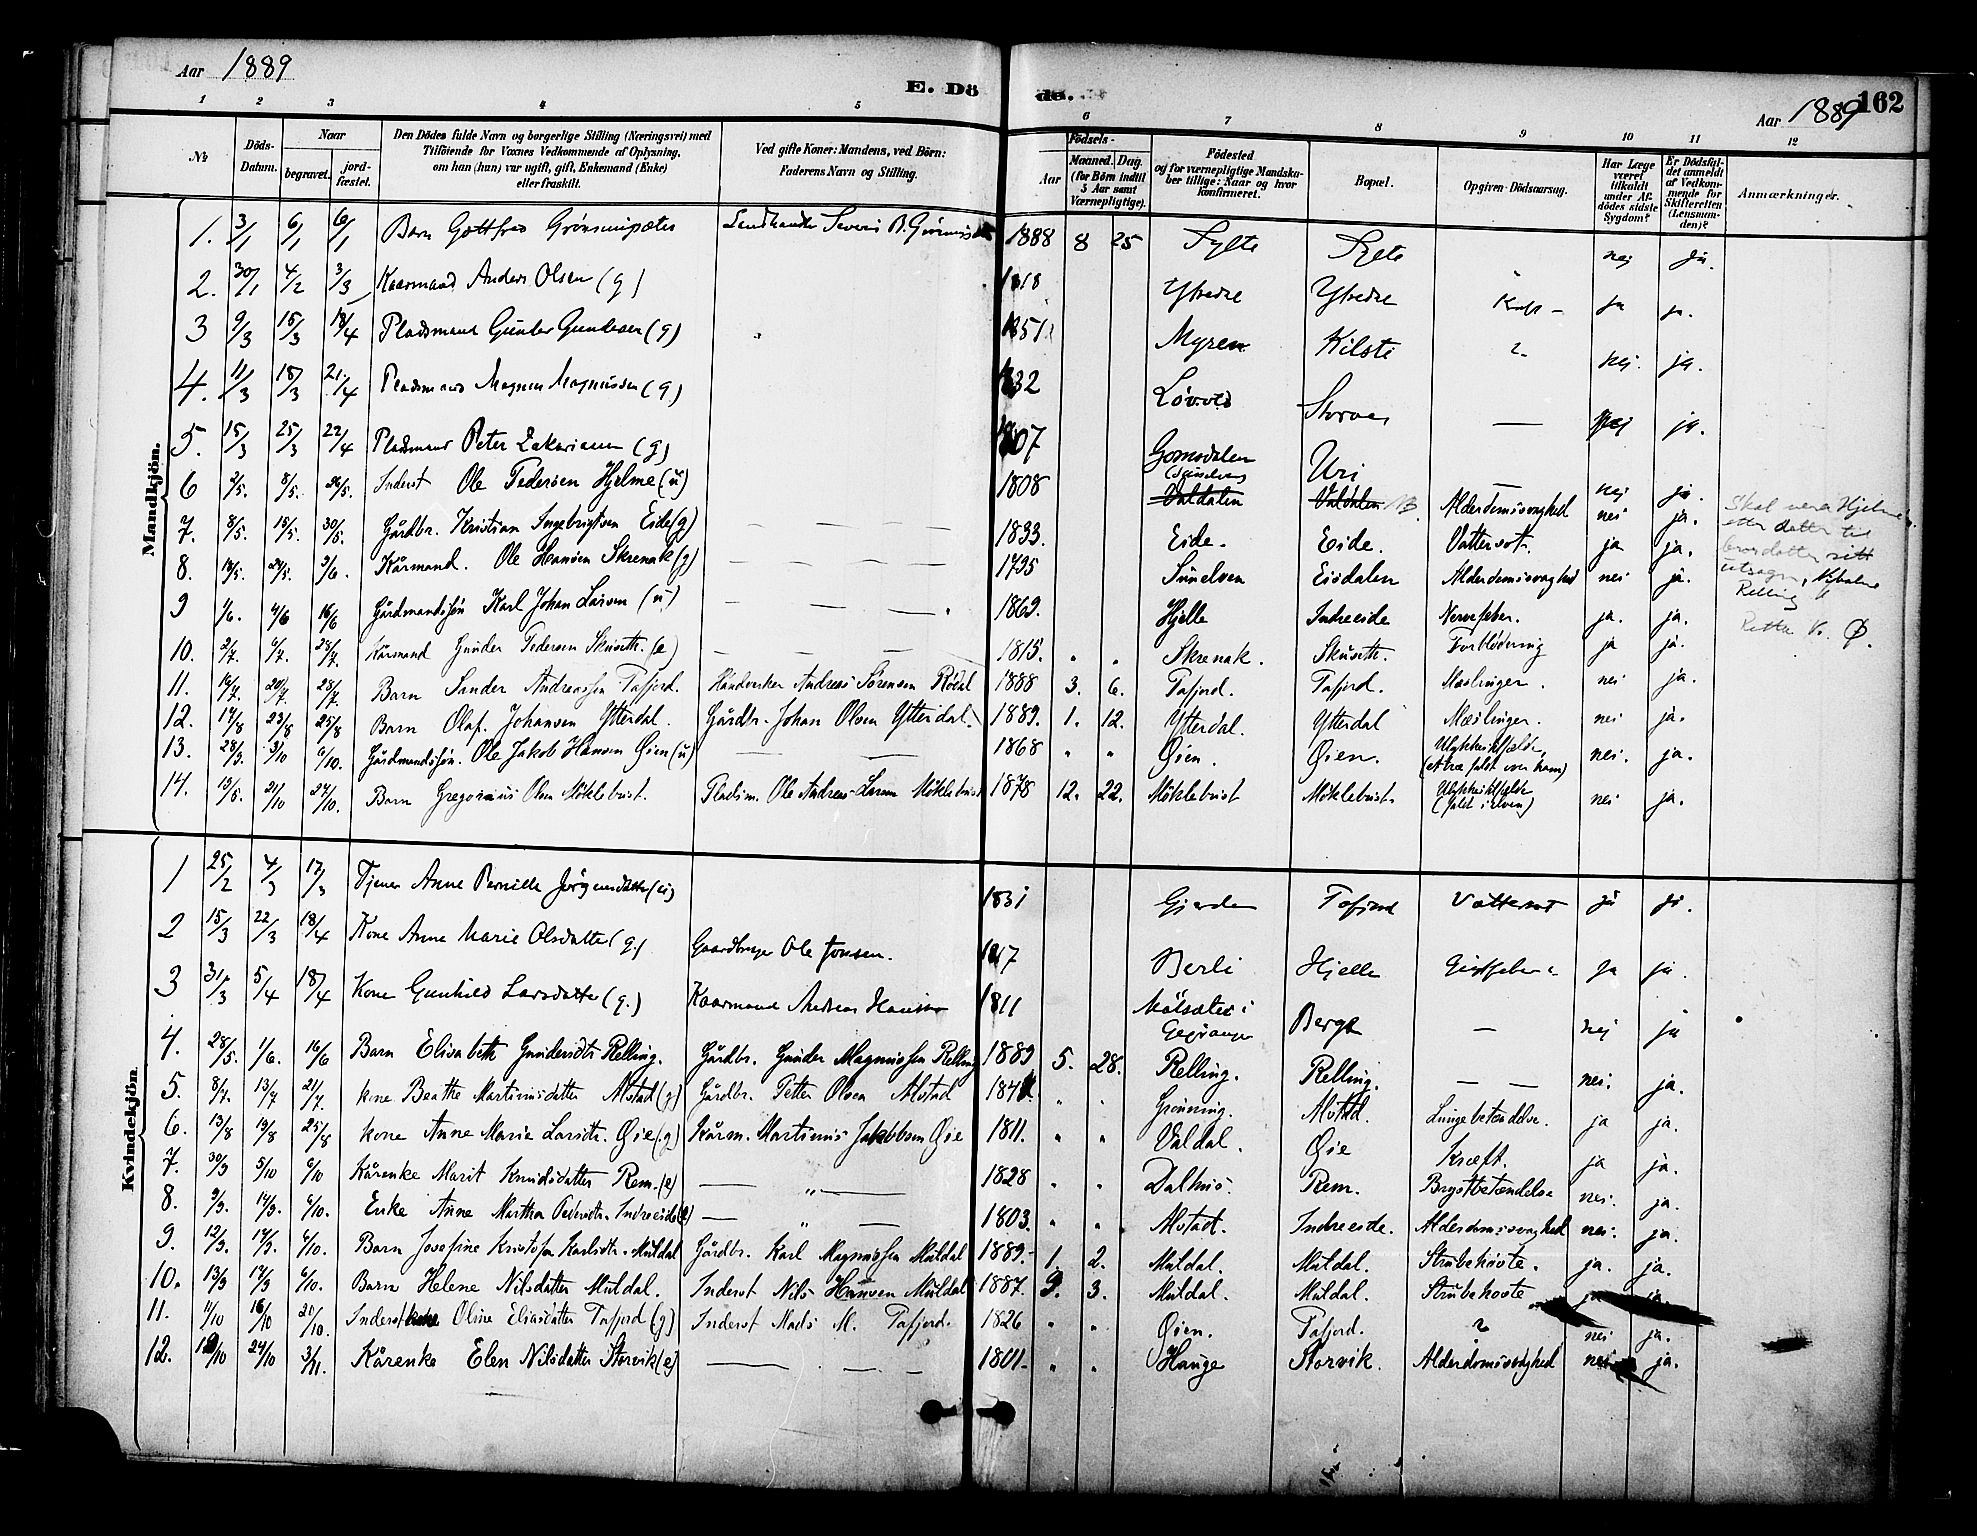 Aar 1889
E. Döde.
Aar 1889
162
1 2 3 4 5 6 7 8 9 10 11 12
№
Döds-Datum.
Naar
begravet.
jord-fæstet.
Den Dödes fulde Navn og borgerlige Stilling (Næringsvei) med
Tilföiende for Voxnes Vedkommende af Oplysning,
om han (hun) var ugift, gift, Enkemand (Enke)
eller fraskilt.
Ved gifte Koner: Mandens, ved Börn:
Faderens Navn og Stilling.
Födsels-
Aar
Maaned. Dag.
(for Börn indtil
5 Aar samt
Værnepligtige).
Födested
og for værnepligtige Mandska-
ber tillige: Naar og hvor
konfirmeret.
Bopæl.
Opgiven Dödsaarsag.
Har Læge
været
tilkaldt
under Af-
dödes sidste
Sygdom?
Er Dödsfal-
det anmeldt
af Vedkom-
mende for
Skifteretten
(Lensman-
den)?
Anmærkninger.
Mandkjön.
1. 3/1 6/1 6/1 Barn Gottfred 1888 8 25 Sylte Sylte nej ja.
2. 30/1 4/2 3/3 Kaarmand Anders Olsen (g) 1818 Ytredre Ytredre ja ja.
3 9/3 15/3 18/4 Pladsmand Gunder Gundersen (g) 1851 Myren Kilsti ? nej. ja.
4. 11/3 18/3 21/4 Pladsmand Magnus Magnussen (g) 1832 Løvold — nej ja.
5. 15/3 25/3 22/4 Pladsmand Peter Zakariasen (g) 1807 Gomsdalen Uri — nej ja.
6 2/5. 8/5. 26/5. Inderst Ole Pedersen Hjelme (u) 1808 (Sunelven) Valdalen Valdalen Alderdomssvaghed nei ja.
7. 8/5. 15/5. 30/5. Gårdbr. Kristian Ingebrigtsen Eide (g) — — — 1833. Eide. Eide. Vattersot. ja ja.
8. 18/5. 24/5. 9/6. Kårmand. Ole Hansen Skrenak (g) — — — 1795 Sunelven Eisdalen Alderdomssvaghed nei ja.
9 1/6. 4/6 16/6 Gårdmandssøn Karl Johan Larsen (u) — — — 1869. Hjelle Indreeide Nervefeber. ja. ja.
10. 2/7. 6/7. 28/7. Kårmand Gunder Pedersen Skuseth. (e) — — — 1815. " " Skrenak. Skuseth. Forblødning ja ja.
11. 16/7 20/7 28/7. Barn Sander Andreassen Tafjord. Håndverker Andreas Sørensen Rødal 1888 3. 6. Tafjord. Tafjord. Mæslinger. nei ja.
12. 17/8 23/8 25/8 Barn Olaf Johansen Ytterdal. Gårdbr. Johan Olsen Ytterdal. 1889. 1. 12. Ytterdal. Ytterdal Mæslinger. nei ja.
13. 28/9 3/10 6/10. Gårdmandssøn. Ole Jakob Hansen Øien (u) — — 1868 " " Øien. Øien. Ulykkestilfælde, (et træ faldt over ham) nei. ja.
14. 19/8. 21/10 27/10. Barn Gregorius Olsen Möklebust. Pladsm. Ole Andreas Larsen Möklebust 1878 12. 22. Möklebust Möklebust. Ulykkestilfælde (faldt i elven) nei ja.
Skal vera Hjelme
etter datter til
brordatter sitt
utsagn,
Relling
Ø.
Kvindekjön
1 25/2 4/3 17/3 Tjener Anne Pernille Jørgensdatter (u) 1831 Gjerde Tafjord Vattersot ja ja.
2 15/3 22/3 18/4 Kone Anne Marie Olsdatter (g.) Gaardbruger Ole Jonsen. 1817 Berli Hjelle Gigtfeber ja ja.
3 31/3 5/4 18/4 Kone Gunhild Larsdatter (g.) Kaarmand Andreas Hansen 1811 Målsæter i Geiranger Berge — nej ja
4. 28/5. 1/6. 16/6 Barn Elisabeth Gundersdtr. Relling. Gårdbr. Gunder Magnussen Relling 1889 5. 28. Relling. Relling. — — nei. ja.
5. 8/7. 13/7 21/7. kone Beathe Martinusdatter Alstad (g) Gårdbr. Petter Olsen Alstad " " Grønning. Alstad. Lungebetændelse. ja ja.
6. 13/8 19/8 25/8 kone Anne Marie Larsdtr. Øie (g) Kårm. Martinus Jakobsen Øie 1811. " " Valdal. Øie Kræft. ja ja.
7. 30/9 5/10 6/10 Kårenke Marit Knudsdatter Rem. (e) — " — 1828 " " Dalhus. Rem. Brystbetændelse nei. ja.
8. 9/9. 14/9. 6/10. Enke Anne Martha Pedersdtr. Indreeide (e) — " — 1803. " " Alstad. Indreeide. Alderdomssvaghed nei. ja.
9. 12/9. 17/9. 6/10. Barn Josefine Kristofa Karlsdtr. Muldal Gårdbr. Karl Magnussen Muldal 1889. 1. 2. Muldal. Muldal. Strubehoste. ja. ja.
10. 13/9 17/9 6/10. Barn Helene Nilsdatter Muldal. Inderst Nils Hansen Muldal 1887. 9. 3. Muldal. Muldal. Strubehoste
11. 11/10 16/10 20/10. Inderstkone Oline Eliasdatter Tafjord (g) Inderst Mads M. Tafjord. 1826 " " Øien. Tafjord. ? nei ja.
12. 19/10 24/10 3/11. Kårenke Elen Nilsdatter Storvik (e) — — 1801. " " Hauge Storvik. Alderdomssvaghed nei ja.